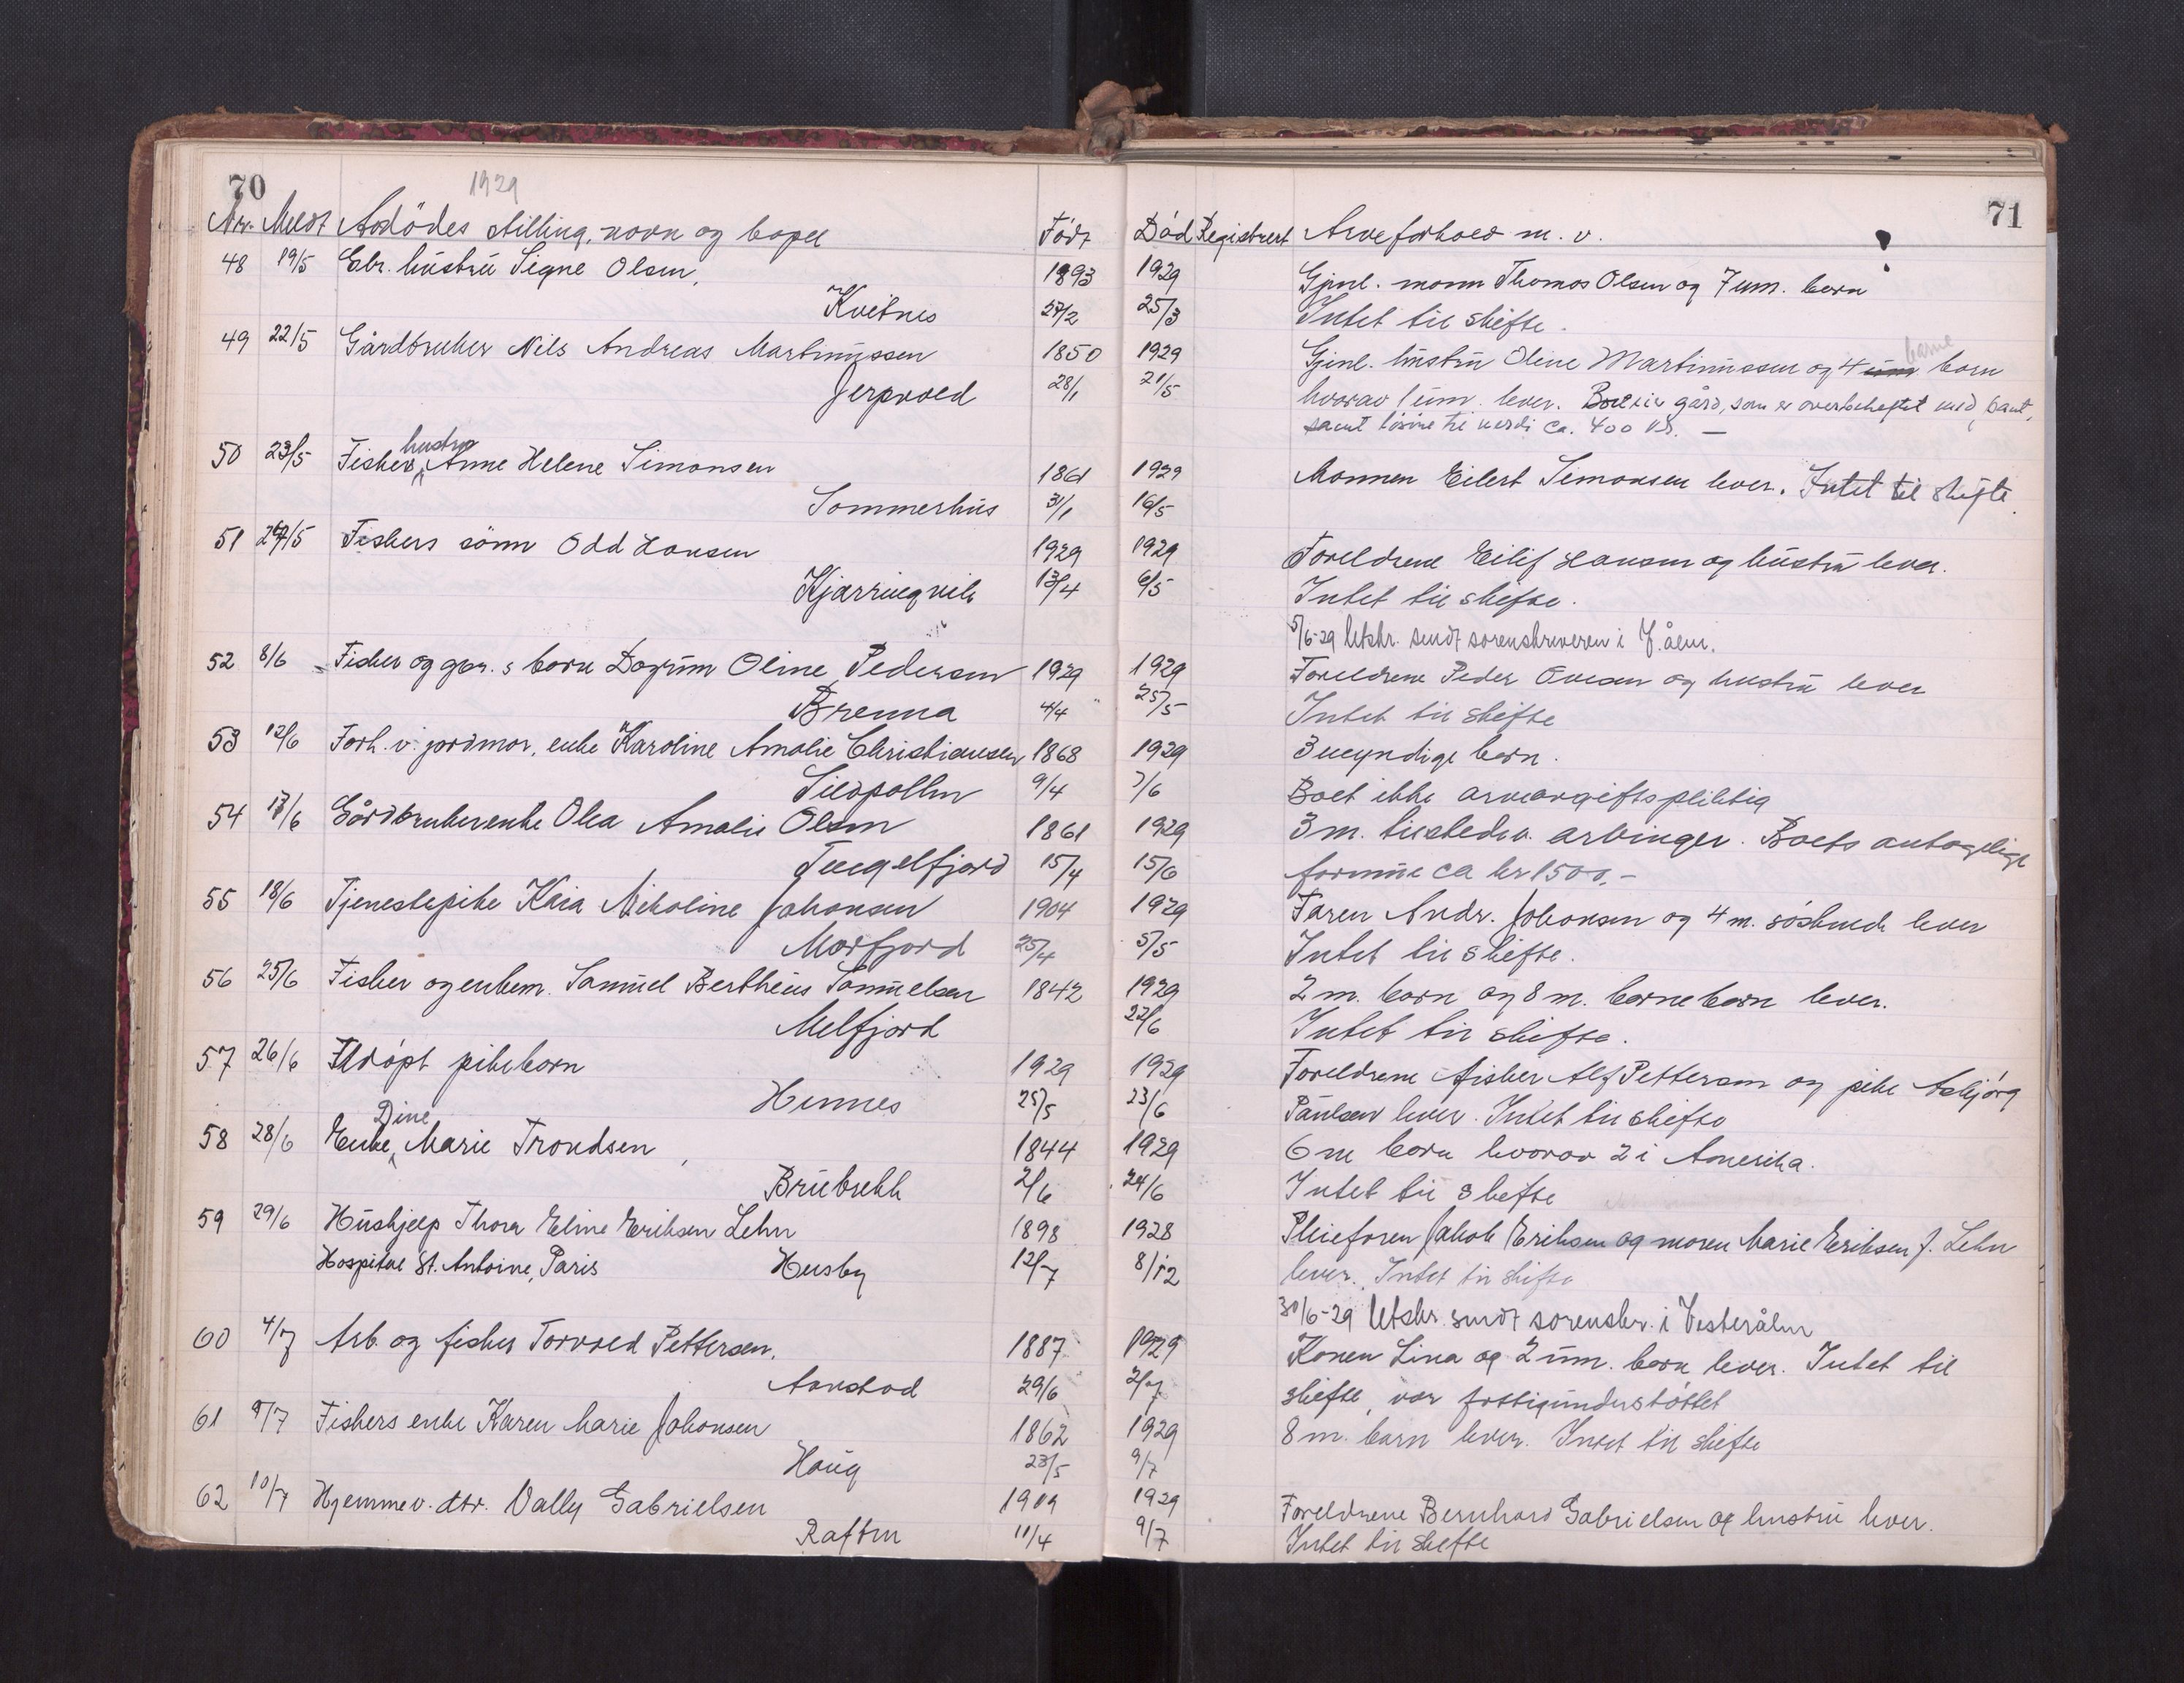 70
1929
71
Nr. Meldt Avdødes stilling, navn og bopel Født Død Registrert Arveforhold m. v.
48 19/5 Gbr. hustru Signe Olsen, 1893 1929 Gjenl. mann Thomas Olsen og 7 um. barn
Kvitnes 27/2 25/3 Intet til skifte.
49 22/5 Gårdbruker Nils Andreas Martinussen 1850 1929 Gjenl. hustru Oline Martinussen og 4 um barne barn
Jerpvold 28/1 21/5 hvorav 1 um. lever. Boet eier gård, som er overbeheftet med pant,
samt løsøre til verdi ca. 400 kr. —
50 23/5 Fisker hustru Anne Helene Simonsen 1861 1929 Mannen Eilert Simonsen lever. Intet til skifte.
Sommerhus 31/1 16/5
51 24/5 Fiskers sønn Odd Hansen 1929 1929 Foreldrene Eilif Hansen og hustru lever.
Kjerringvik 13/4 6/5 Intet til skifte.
5/6-29 Utskr. sendt sorenskriveren i V.ålen.
52 8/6 Fisker og gbr.s barn Dagrun Oline Pedersen 1929 1929 Foreldrene Peder Ovesen og hustru lever
Brenna 4/4 25/5 Intet til skifte
53 12/6 Forh. v. jordmor, enke Karoline Amalie Christiansen 1868 1929 3 myndige barn.
Sildpollen 9/4 7/6 Boet ikke arveavgiftspliktig
54 17/6 Gårdbrukerenke Olea Amalie Olsen 1861 1929 3 m. tilstedev. arvinger. Boets antagelige
Tengelfjord 15/4 15/6 formue ca kr 1500,-
55 18/6 Tjenestepike Kaia Nikoline Johansen 1904 1929 Faren Andr. Johansen og 4 m. søskende lever
Morfjord 25/4 5/5 Intet til skifte.
56 25/6 Fisker og enkem. Samuel Bertheus Samuelsen 1842 1929 2 m. barn og 8 m. barnebarn lever.
Melfjord 22/6 Intet til skifte.
57 26/6 Udøpt pikebarn 1929 1929 Foreldrene fisker Alf Pettersen og pike Asbjørg
Hennes 25/5 23/6 Paulsen lever. Intet til skifte
58 28/6 Enke Dine Marie Trondsen 1844 1929 6 m barn hvorav 2 i Amerika.
Brubrekk 2/6 24/6 Intet til skifte
59 29/6 Hushjelp Thora Eline Eriksen Lehn 1898 1928 Pleiefaren Jakob Eriksen og moren Marie Eriksen f. Lehn
Hospital St. Antoine, Paris Husby 12/7 8/12 lever. Intet til skifte
30/6-29 Utskr. sendt sorenskr. i Vesterålen
60 4/7 Arb. og fisker Torvald Pettersen. 1887 1929 Konen Lina og 2 um. barn lever. Intet til
Aanstad 29/6 2/7 skifte, var fattigunderstøttet
61 9/7 Fiskers enke Karen Marie Johansen 1862 1929 8 m. barn lever. Intet til skifte
Haug 23/5 9/7
62 10/7 Hjemmev. dtr. Vally Gabrielsen 1909 1929 Foreldrene Bernhard Gabrielsen og hustru lever.
Raften 11/4 9/7 Intet til skifte